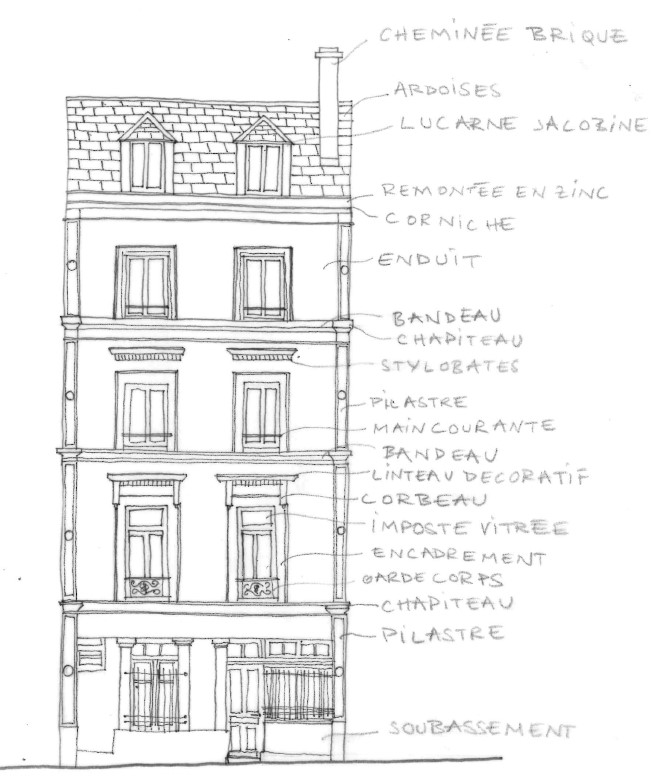 CHEMINÉE BRIQUE
ARDOISES
LUCARNE JACOBINE
REMONTÉE EN ZINC
CORNICHE
ENDUIT
BANDEAU
CHAPITEAU
STYLOBATES
PILASTRE
MAIN COURANTE
BANDEAU
LINTEAU DECORATIF
CORBEAU
IMPOSTE VITRÉE
ENCADREMENT
GARDE CORPS
CHAPITEAU
PILASTRE
SOUBASSEMENT